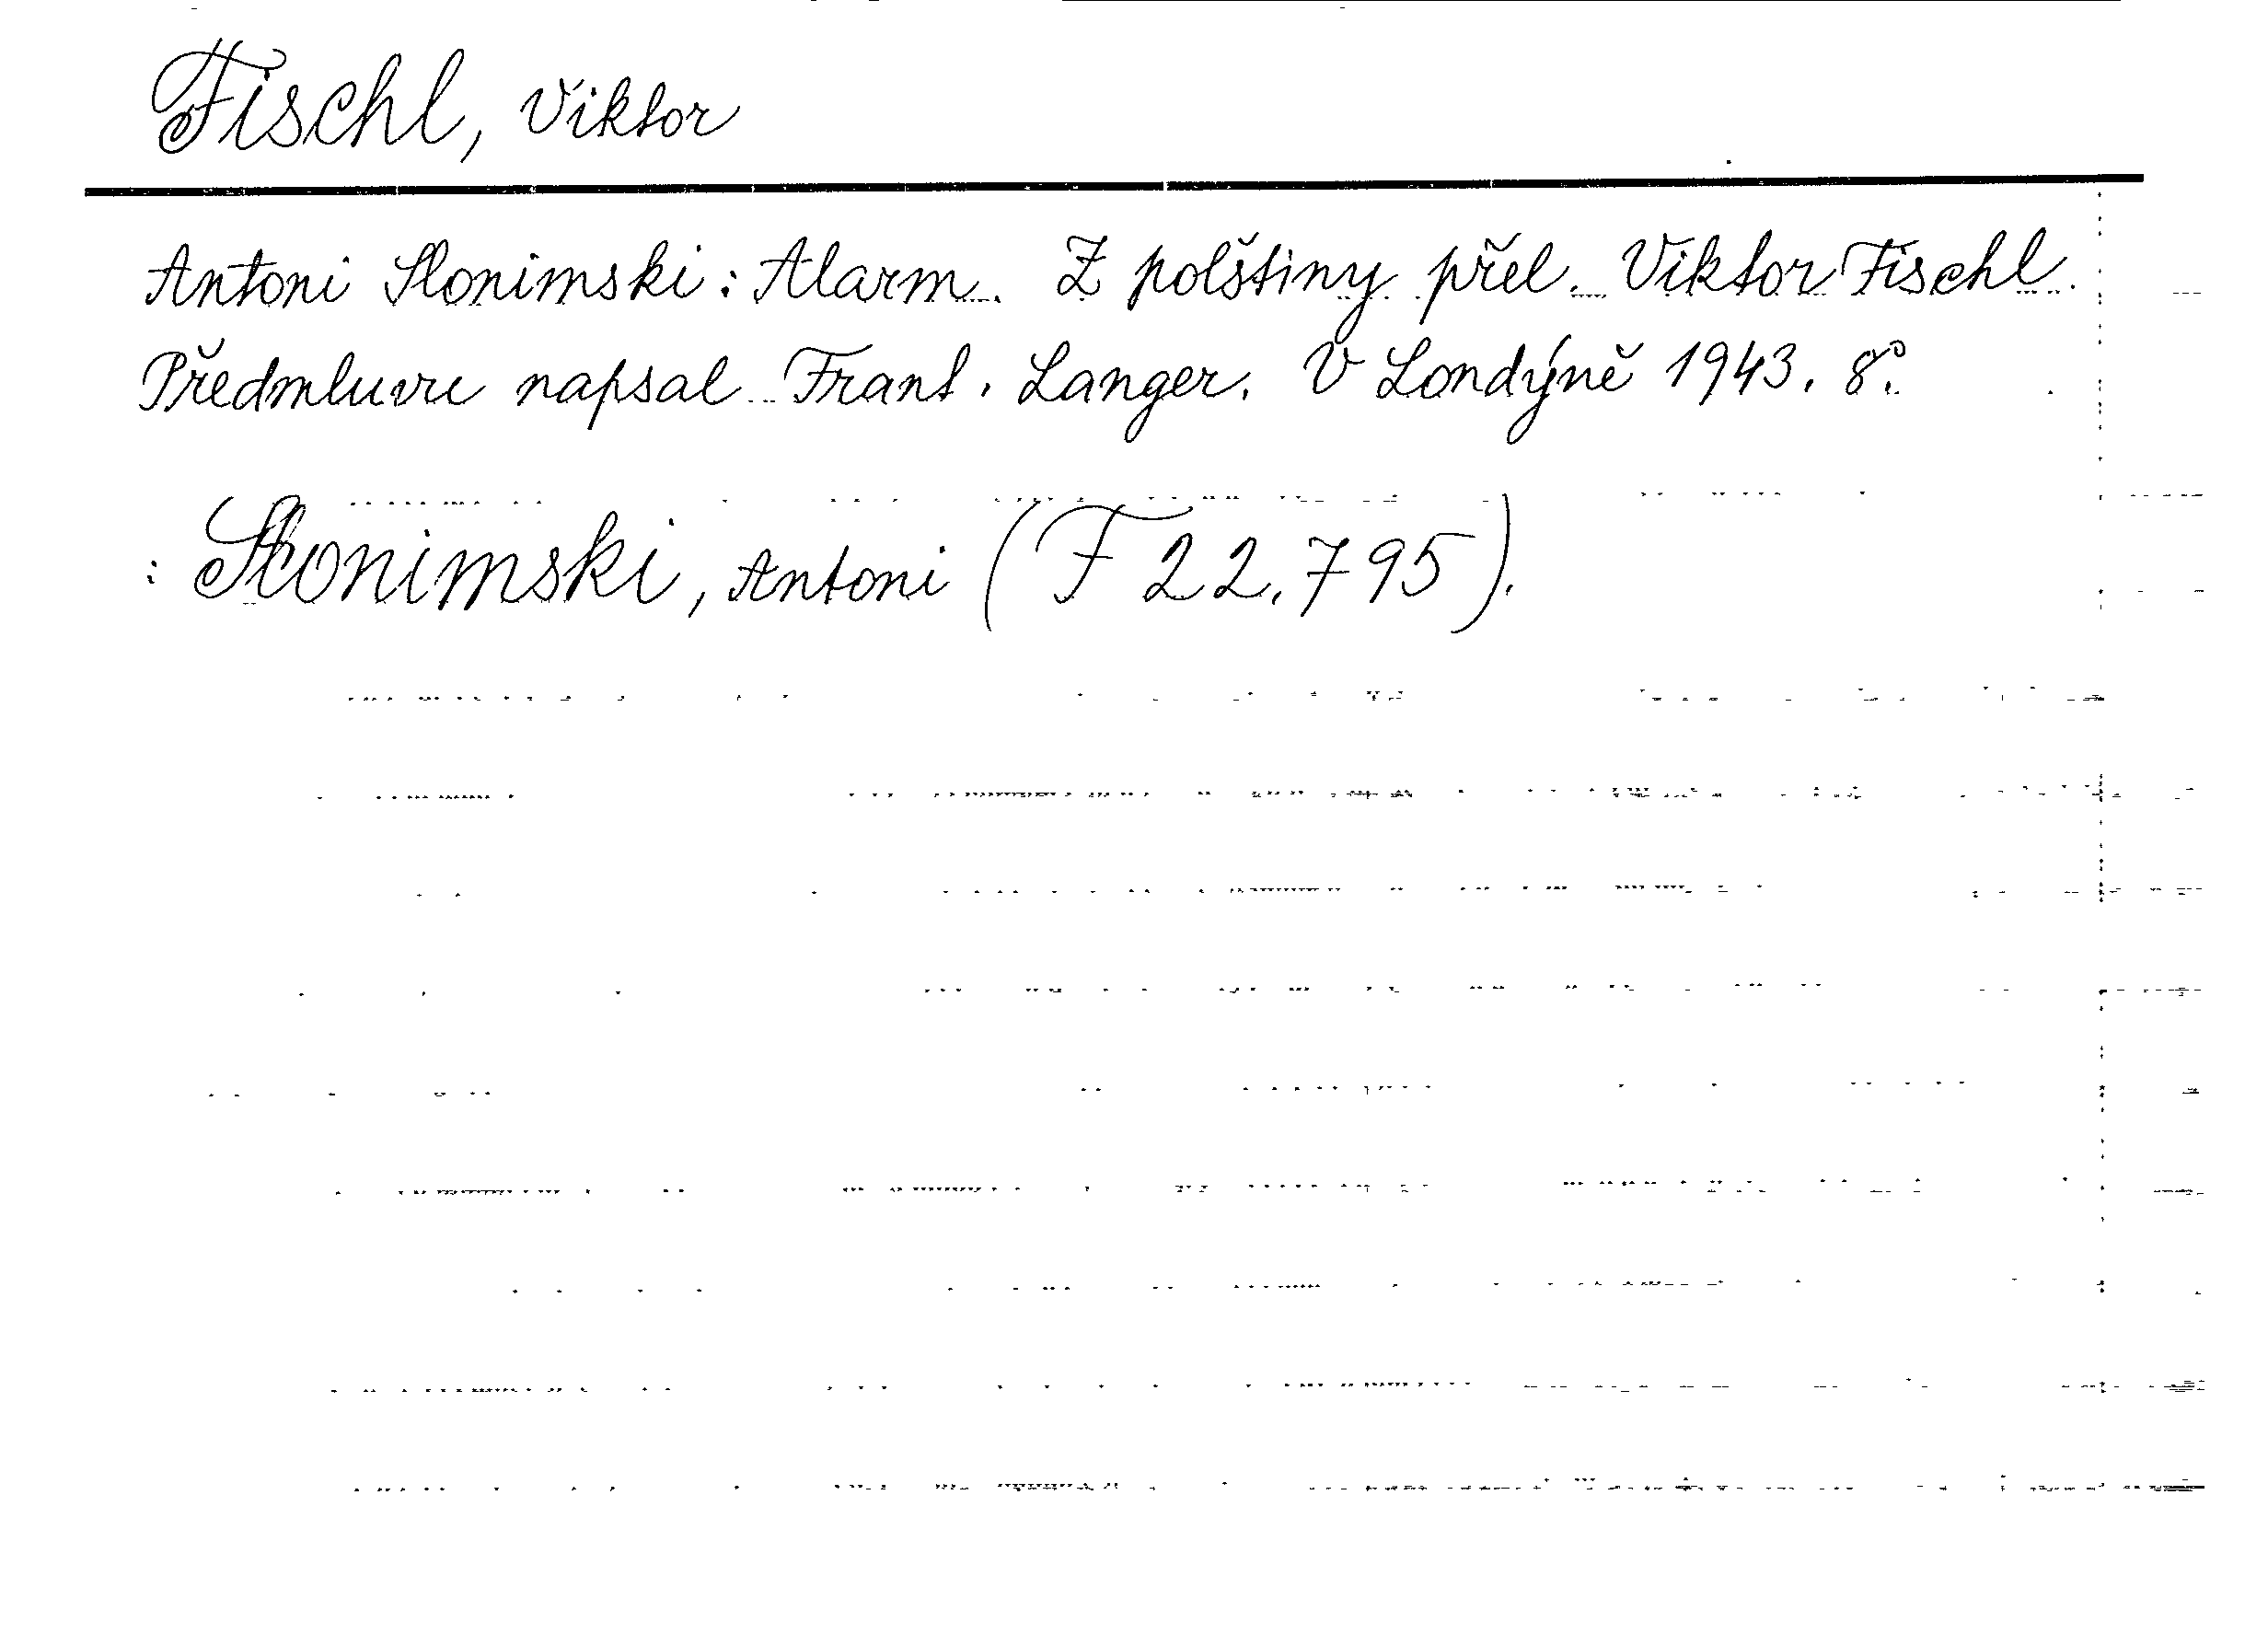 Fischl, Viktor
Antoni Slonimski: Alarm. Z polštiny přel. Viktor Fischl.
Předmluvu napsal Frant. Langer. V Londýně 1943. 8°.
: Slonimski, Antoni (F 22.795).